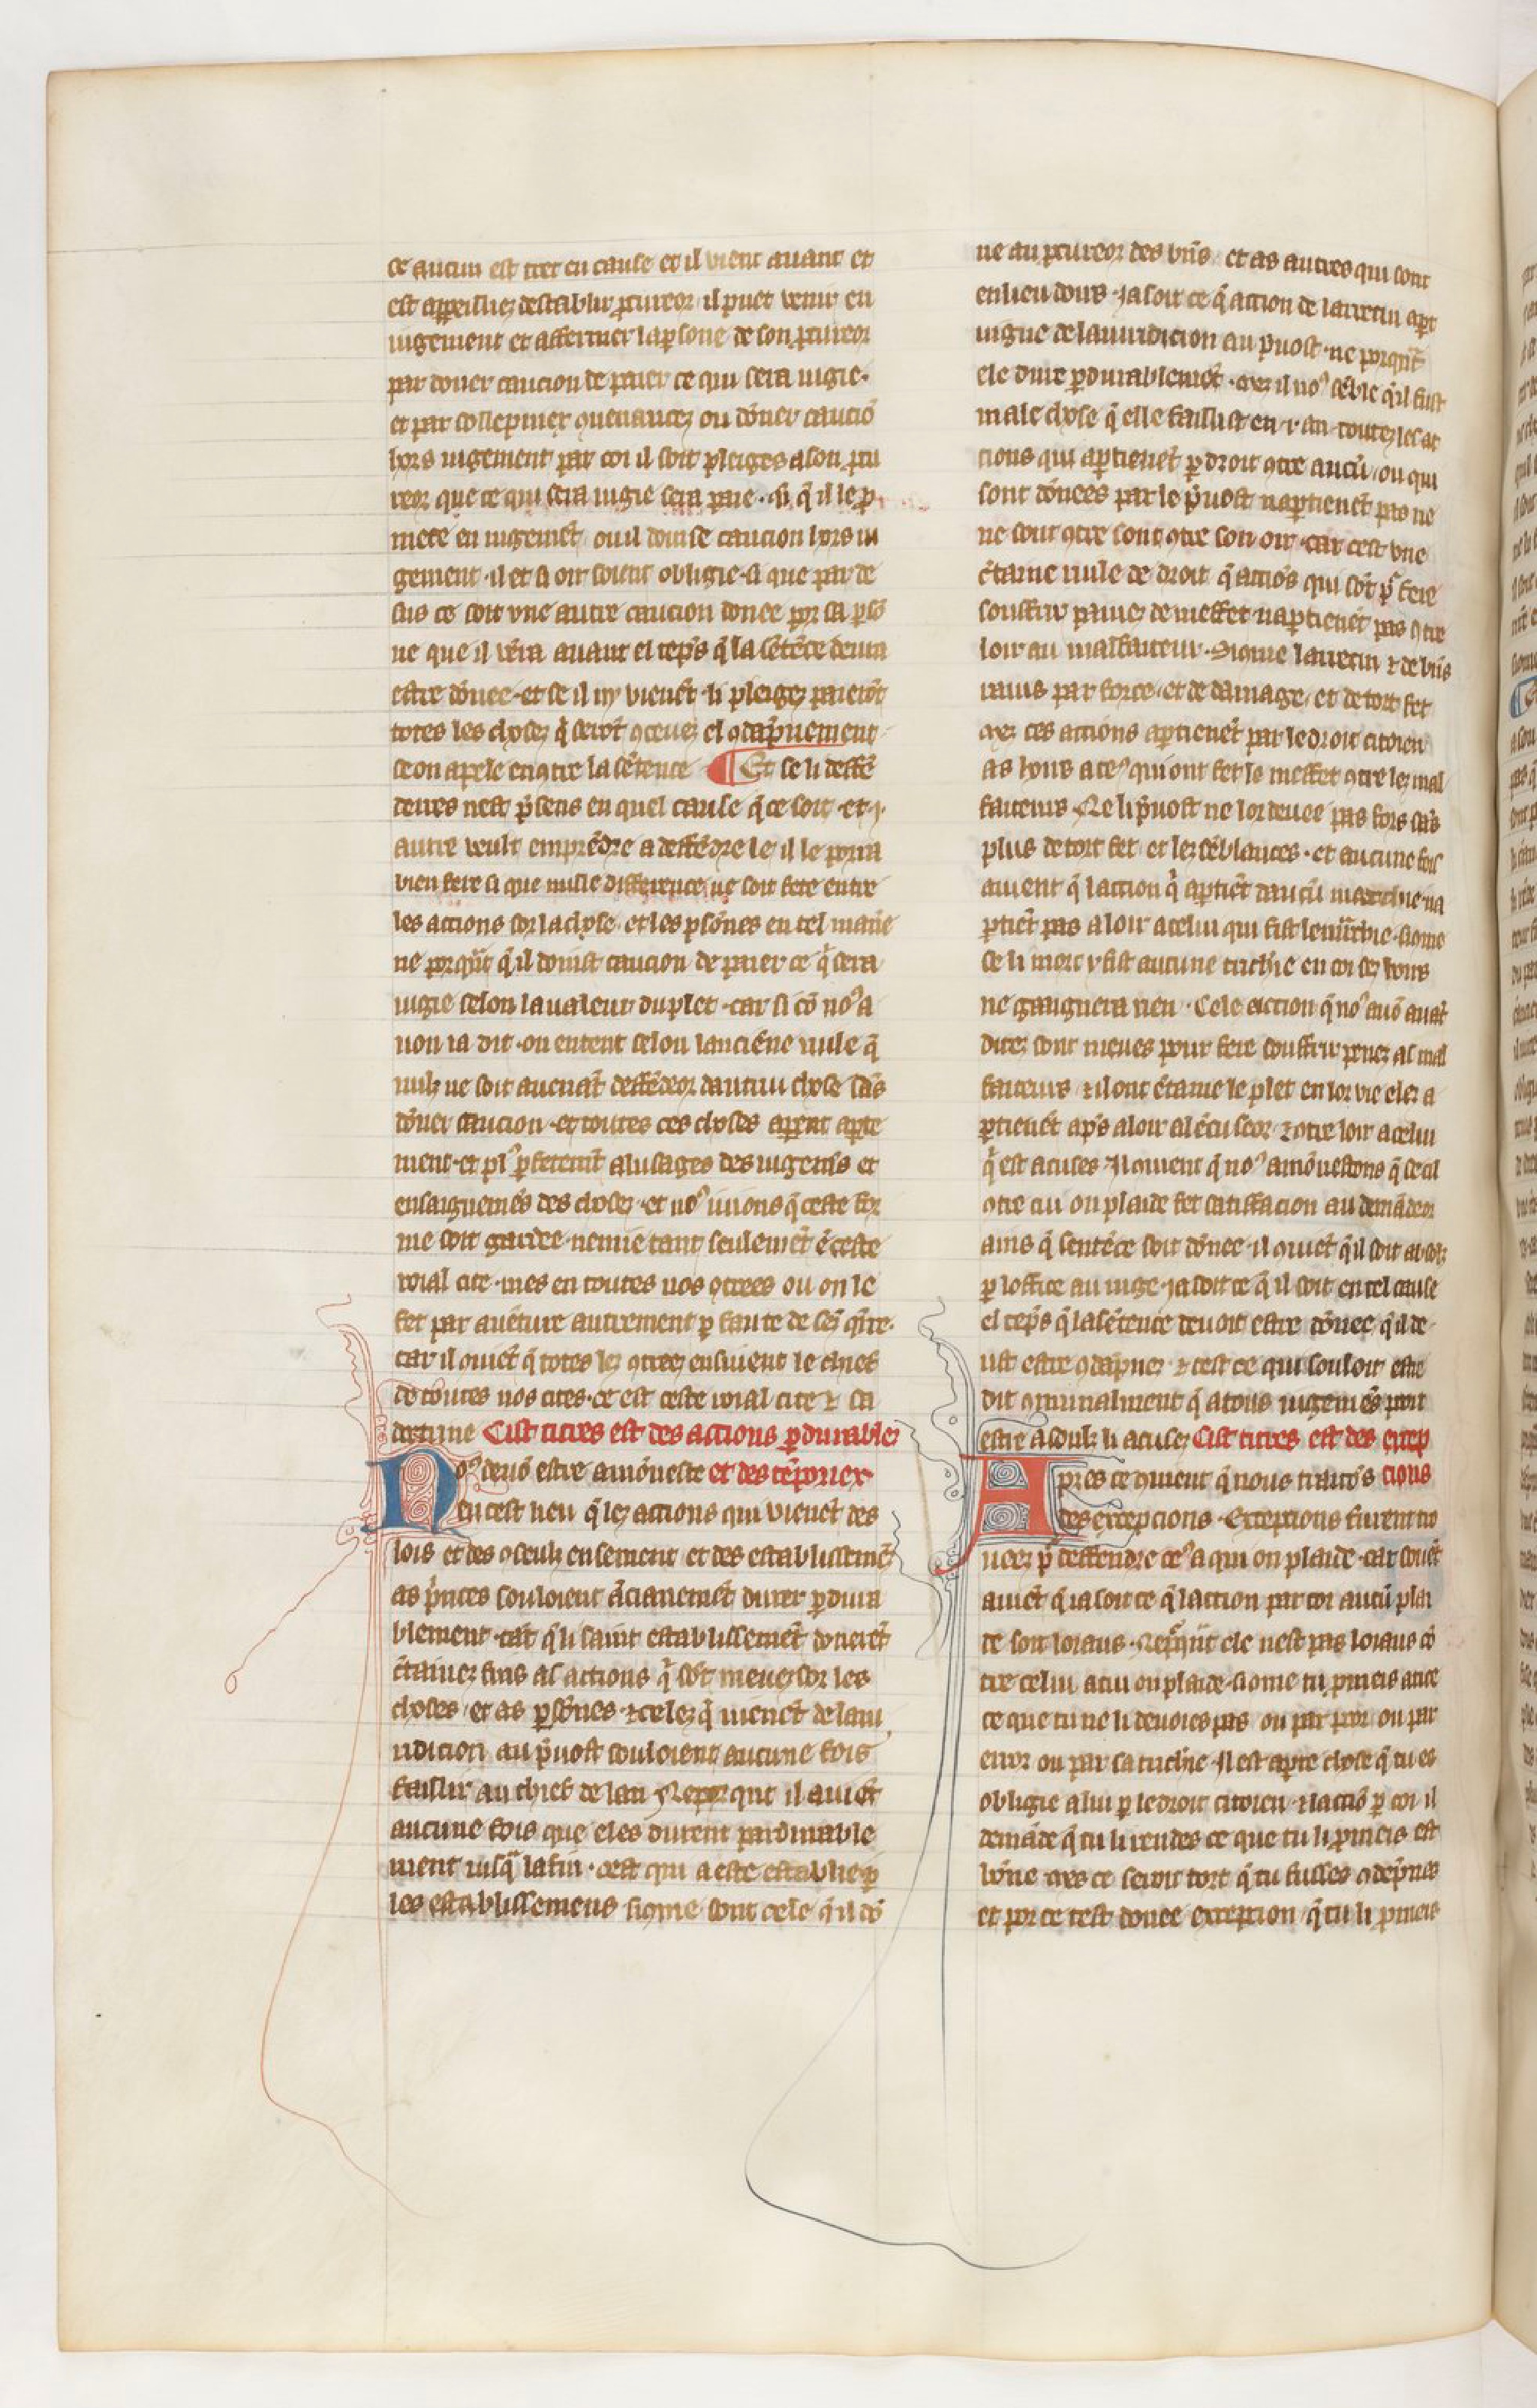 ce aucun est tret en cause et il vient auant et
est appeilliez destablir ꝓcureor il puet venir en
iugement et affermer la ꝑsone de son ꝓcureor
par doner caucion de paier ce qui sera iugie·
et par sollepniex ꝯuenancez ou dōner cautiō
hors iugement par coi il soit pleiges a son ꝓcu
reor que ce qui sera iugie sera paie· si q̄ il le ꝓ
mete en iugemēt ou il doinse caucion hors iu
gement · il et si oir soient obligie · si que par de
sus ce soit vne autre caucion donee por sa ꝑso
ne que il vēra auant el tēps q̄ la sētēce deura
estre dōnee · et se il ny vienēt · li pleigez paierōt
totes les chosez q̄ serōt ꝯteuez el ꝯdāpnement
se on apele encōtre la sētence Et se li deffē
deures nest p̄sens en quel cause q̄ ce soit · et ·i·
autre veult emprēdre a deffēdre le il le porra
bien fere si que nulle difference ne soit fete entre
les actions sor la chose · et les ꝑsōnes en tel manie
ne porquāt q̄ il doinst caucion de paier ce q̄ sera
iugie selon la ualeur du plet · car si cō noꝰ a
uon ia dit · on entent selon lanciēne riule q̄
nulz ne soit auenāt deffēdeor dautrui chose sās
dōner caucion · et toutes ces choses aperent aperte
ment · et plꝰ ꝑfetemēt as usages des iugemēs et
ensaignemēs des chosez · et noꝰ iurons q̄ ceste for
me soit gardee · nemie tant seulemēt ē ceste
roial cite · mes en toutes nos ꝯtrees ou on le
fet par auēture autrement ꝑ faute de sēz q̄rre·
car il ꝯuiēt q̄ totes lez ꝯtreez ensuient le chief
de toutes nos cites · ce est ceste roial cite ⁊ sa
doctrine Cist titres est des actions ꝑdurables
Noꝰ deuō estre amōneste et des tēporiex
en cest lieu q̄ lez actions qui vienēt des
lois et des ꝯseulz ensement et des establissemēs
as p̄nces souloient ācianemēt durer ꝑdura
blement · tāt q̄ li saint establissemēt donerēt
c̄tainez fins as actions q̄ sōt meuez sor les
choses · et as ꝑsōnes · ⁊ celez q̄ uienēt de la iu
ridicion au p̄uost souloient aucune fois
faillir au chief de lan Neporquāt il auiēt
aucune fois que eles durent pardurable
ment iusq̄ la fin · cest qui a este establie ꝑ
les establissemens siꝯme sont cele q̄ il dō
ne au ꝓcureor des biēs · et as autres qui sont
en lieu doirs · ia soit ce q̄ action de larrecin apt
uigne de la iuridicion au p̄uost · ne porquāt
ele dure ꝑdurablemēt · mez il noꝰ sēble q̄ il fust
male chose q̄ elle faillist en ·i· an · toutez les ac
tions qui aꝑtienēt ꝑ droit ꝯtre aucū / ou qui
sont dōnees par le p̄uost naꝑtienēt pas ne
ne sont ꝯtre sont ꝯtre son oir · car cest vne
c̄taine riule de droit q̄ actiōs qui sōt pͬ fere
souffrir painez de meffet · naꝑtienēt pas ꝯtre
loir au malfaiteur · siꝯme larrecin ⁊ de biēs
rauis par force · et de damage / et de tort fet
mez ces actions aꝑtienēt par le droit citoien
as hoirs a ceꝰ qui ont fet le meffet ꝯtre lez mal
faiteurs · Ne li p̄uost ne lor deuee pas fors sās
plus de tort fet · et lez sēblances · et aucune fois
auient q̄ laction q̄ aꝑtiēt daucū marchie na
ꝑtiēt pas a loir a celui qui fist le marchie · siꝯme
se li mort y fist aucune tricherie en coi sez hoirs
ne gaagnera rien · Cele action q̄ noꝰ auō auāt
ditez sont meues pour fere souffrir penez as mal
faiteurs · ⁊ il ont ētame le plet en lor vie elez a
ꝑtienēt aps̄ a loir al ēcuseor · ⁊ ꝯtre loir a celui
q̄ est acuses · Il ꝯuient q̄ noꝰ amōnestons q̄ se cil
ꝯtre cui on plaide fet satisfacion au demādeor
ains q̄ sentēce soit dōnee · il ꝯuiēt q̄ il soit absolz
ꝑ loffice au iuge · ia soit ce q̄ il soit en tel cause
el tēps q̄ la sētence deuoit estre dōnee · q̄ il de
ust estre ꝯdāpnez · ⁊ cest ce qui souloit estre
dit ꝯmunalment q̄ a tous iugemēs puet
estre asoulz li acusez Cist titres est des excep
Apres ce ꝯuient q̄ nous traitōs cions
des excepcions · Excepcions furent tro
ueez pͬ deffendre ceꝰ a qui on plaide · car souēt
auiēt q̄ ia soit ce q̄ laction par coi aucū plai
de soit loiaus · Neporquāt ele nest pas loiaus cō
tre celui a cui on plaide · siꝯme tu ꝓmeis a rice
ce que tu ne li deuoies pas · ou par poor / ou par
error ou par sa tricherie · Il est aperte chose q̄ tu es
obligie a lui ꝑ le droit citoien · ⁊ lactiō ꝑ coi il
demāde q̄ tu li rendes ce que tu li ꝓmeis est
bōne · mes ce seroit tort q̄ tu fusses ꝯdēpnes
et por ce test donee exception / q̄ tu li ꝓmeis